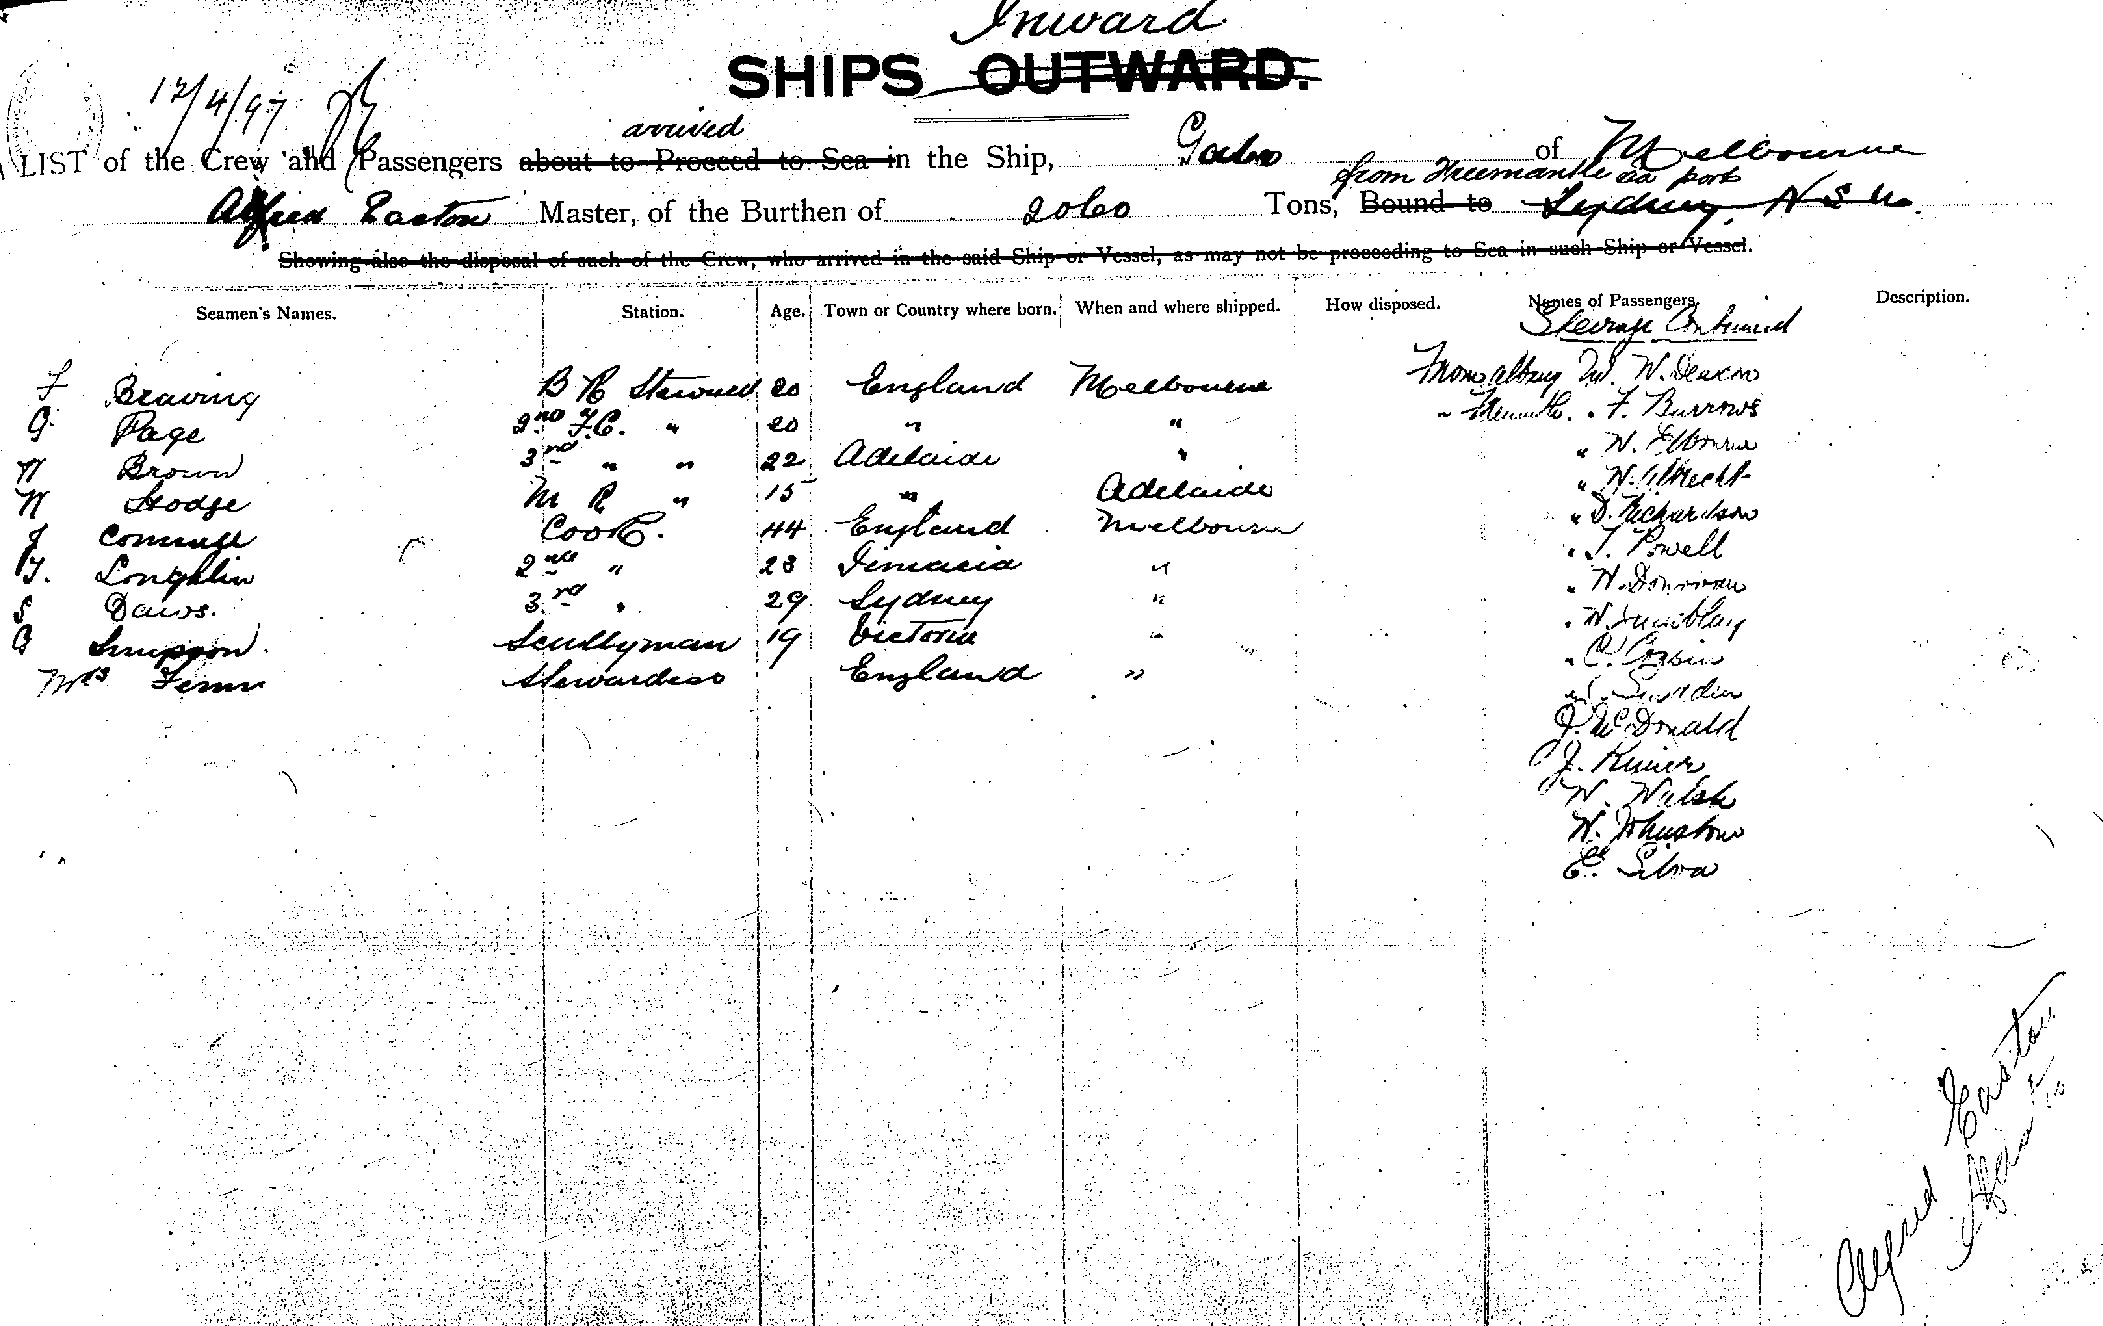 Inward
SHIPS OUTWARD.
12/4/97
arrived
LIST of the Crew and Passengers about to Proceed to Sea in the Ship, Gabo of Melbourne
from Freemantle via ports
Alfred Easton Master, of the Burthen of 2060 Tons, Bound to Sydney N S W.
Showing also the disposal of such of the Crew, who arrived in the said Ship or Vessel, as may not be proceeding to Sea in such Ship or Vessel.
Seamen's Names. Station. Age. Town or Country where born. When and where shipped. How disposed. Names of Passengers. Description.
Steerage Continued
F Beaving B R Steward 20 England Melbourne From albany W. Deakin
G. Page 2nd F.C. " 20 " " " F. Burrows
W Brown 3rd " " 22 Adelaide " " W.
W Hodge M R " 15 " Adelaide " W. Albrecht
J Cook. 44 England Melbourne " D. Richardson
Loughlin 2nd " 23 " " T. Powell
S Daws. 3rd " 29 Sydney " " W. Donovan
A Simpson. Scullyman 19 Victoria " " W.
Mrs Fenn Stewardess England " " C.
J. McDonald
J.
W. Walsh
W. Johnston
E. Silva
Alfred Easton